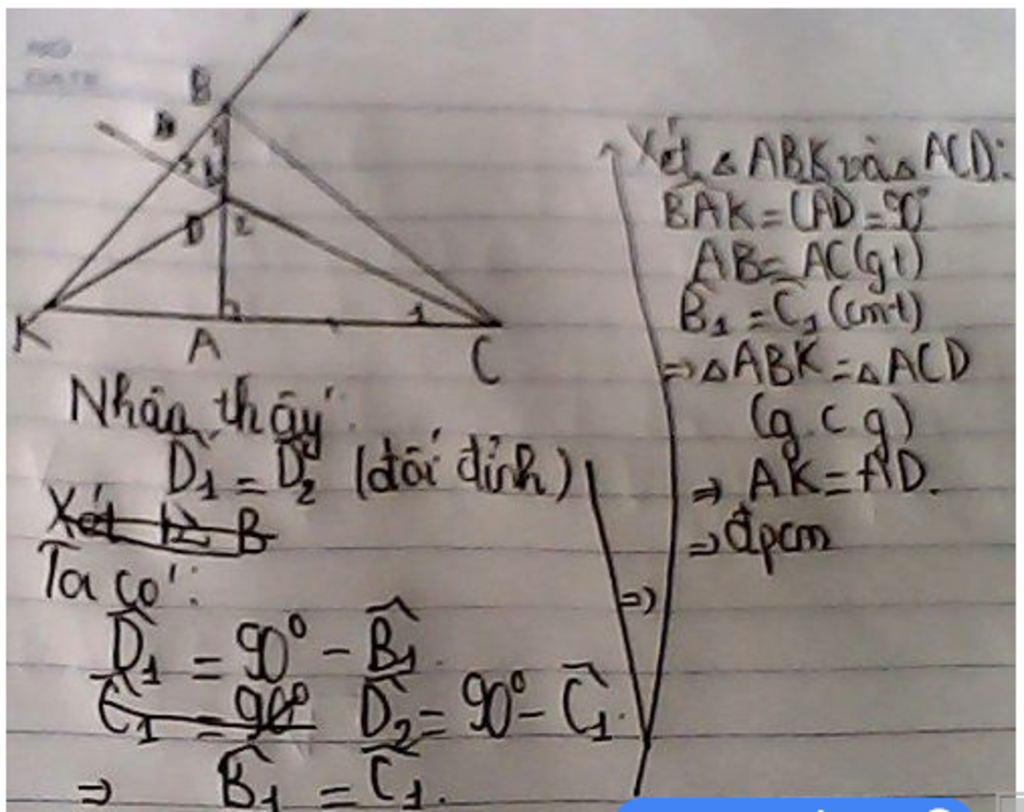 B
D
1
2
1
K
A
C
Nhận thấy:
D̂1 = D̂2 (đối đỉnh)
Xét B
Ta có:
D̂1 = 90° - B̂1.
Ĉ1 = 90° D̂2 = 90° - Ĉ1.
⇒ B̂1 = Ĉ1.
⇒
Xét △ABK và △ACD:
BAK = CAD = 90°
AB = AC (gt)
B̂1 = Ĉ1 (cmt)
⇒ △ABK = △ACD
(g.c.g)
⇒ AK = AD.
⇒ đpcm